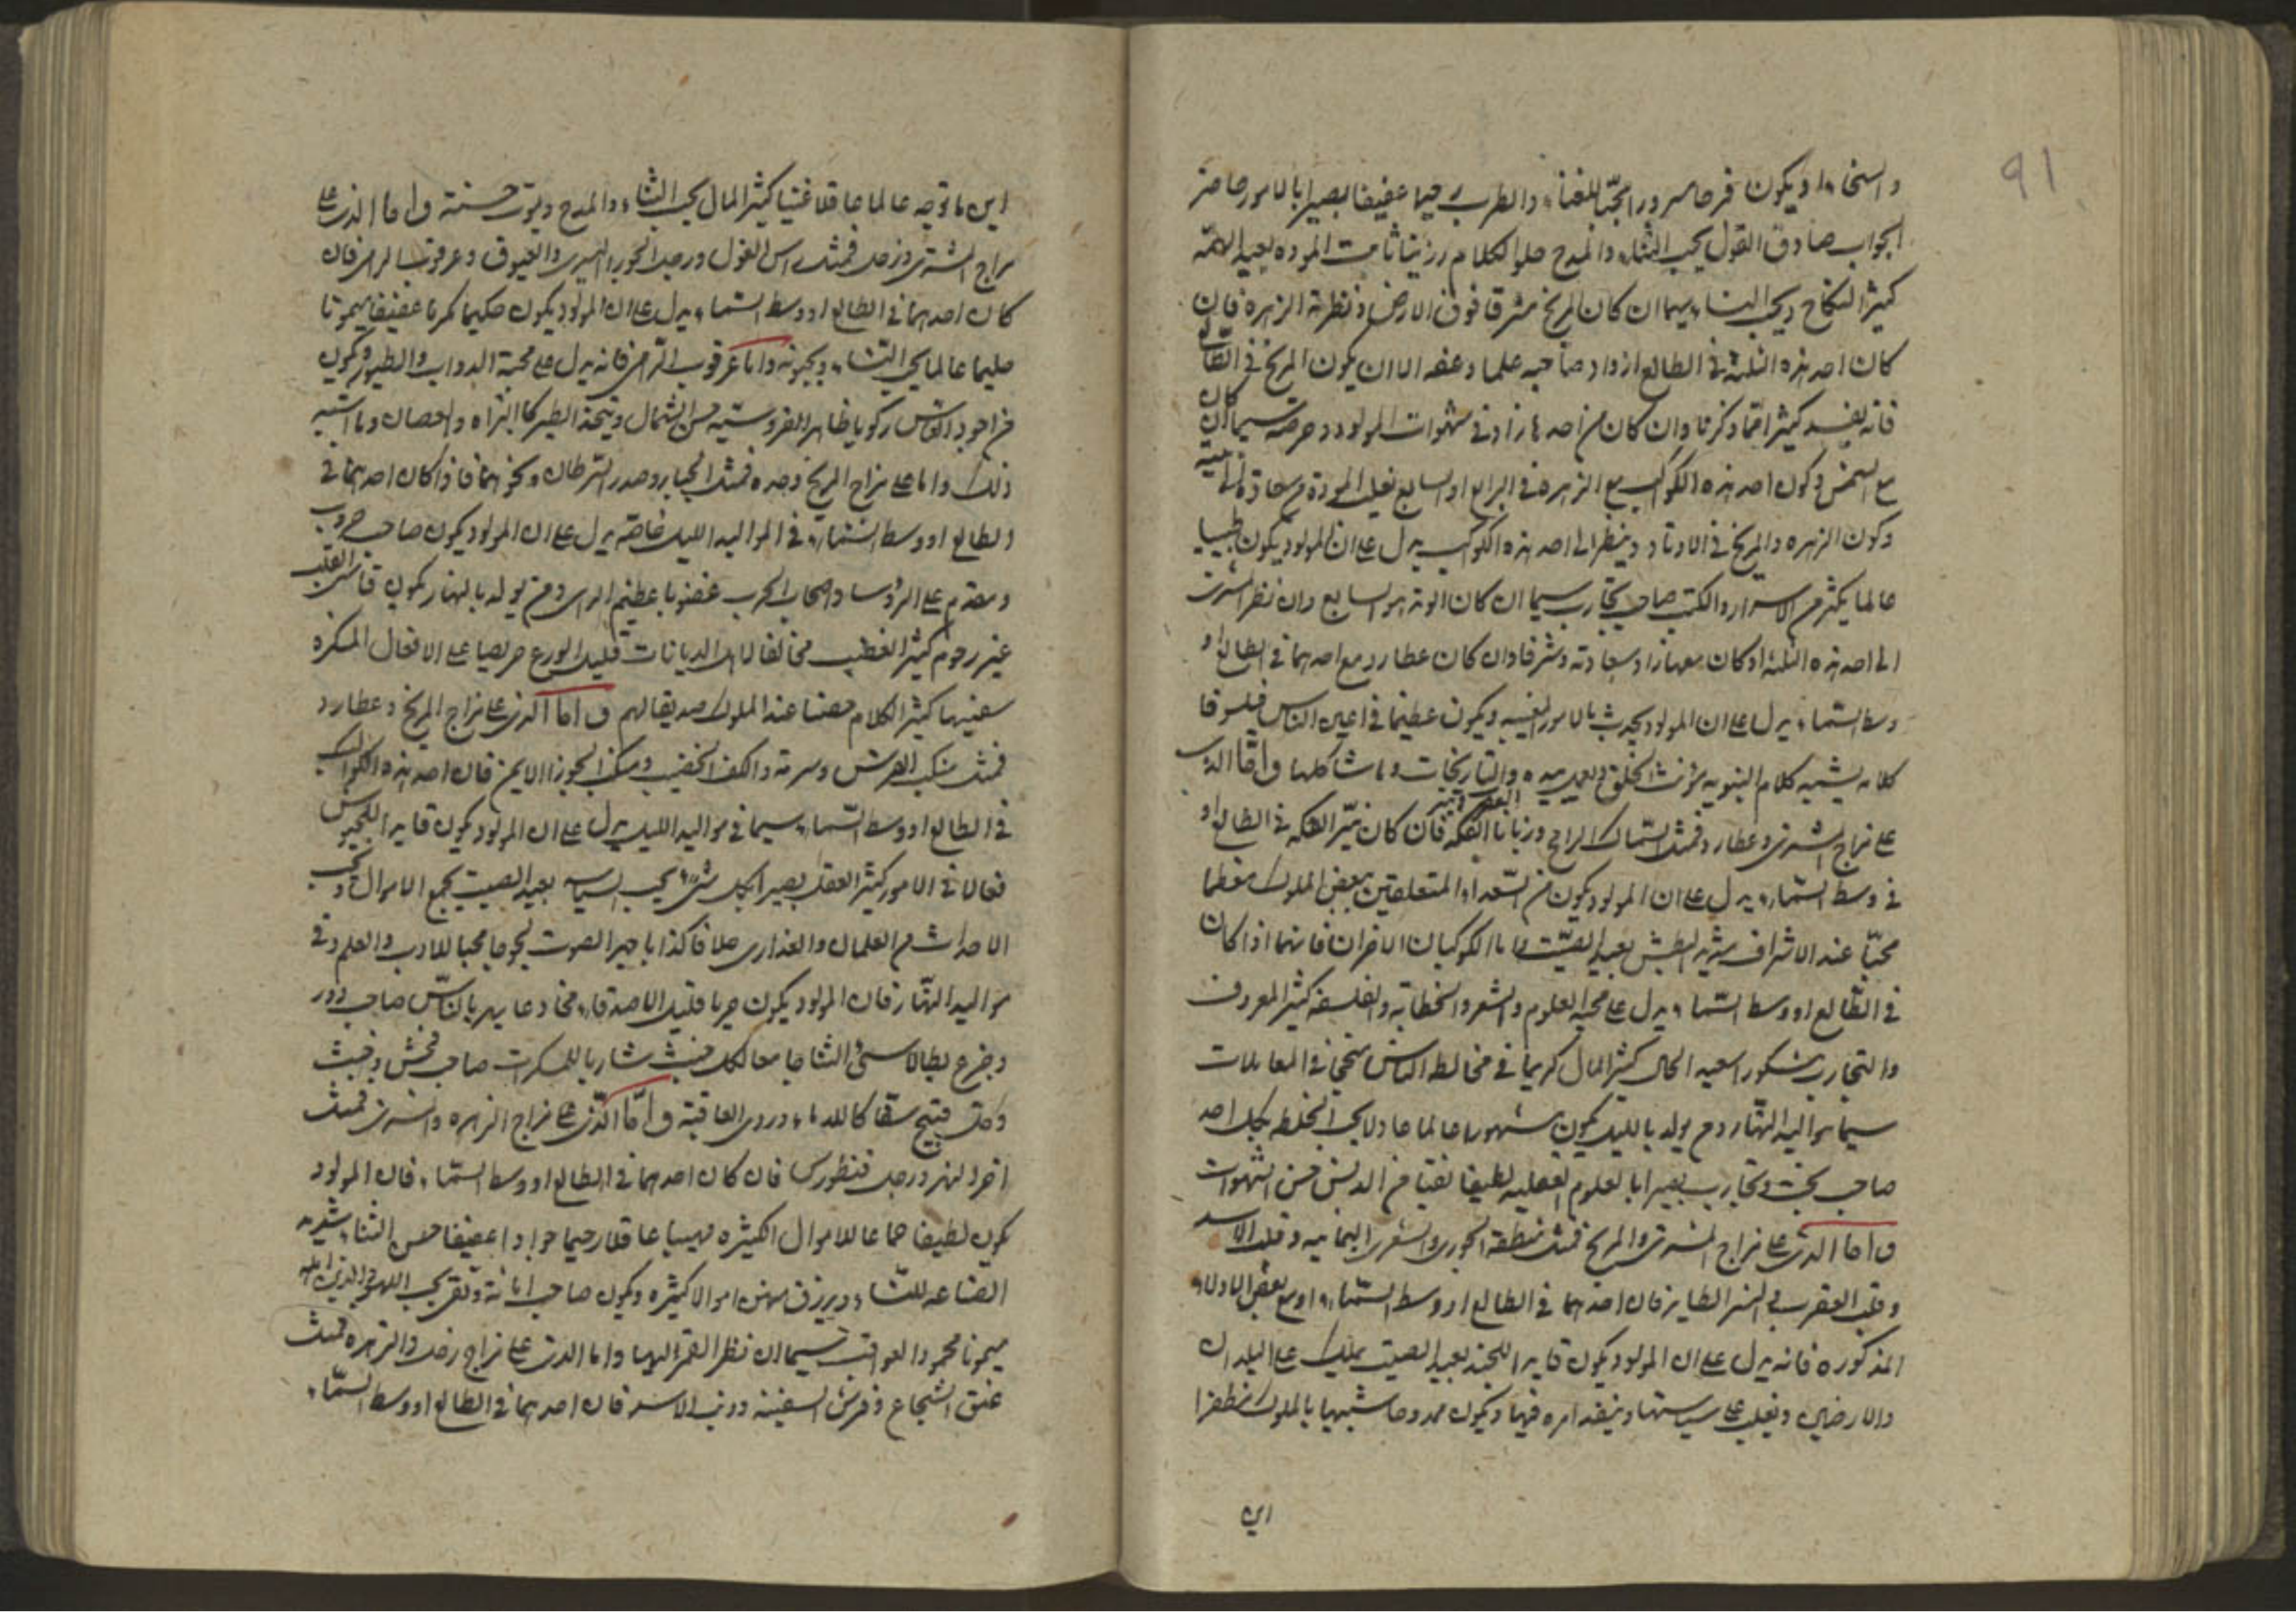 91
والسخاء او يكون فرحا مسرورا محبّا للغناء والطرب رحيما عفيفا بصيرا بالامور حاضر
الجواب صادق القول يحب الثناء والمدح حلو الكلام رزينا ثابت المودة بعيد الهمّة
كثير النكاح ويحب النساء سيما ان كان المريخ مشرقا فوق الارض ونظر الزهرة فان
كان احد هذه الثلثة في الطالع ازداد صاحبه علما وعفه الا ان يكون المريخ في الطالع
فانه يفسد كثيرا مما ذكرنا وان كان من احدها زاد في شهوات المولود وحرصه سيما ان كان
مع الشمس وكون احد هذه الكواكب مع الزهرة في الرابع او السابع
وكون الزهرة والمريخ في الاوتاد وينظر الى احد هذه الكواكب يدل على ان المولود يكون طبيبا
عالما يكثر من الاسرار والكتب صاحب تجارب سيما ان كان الوتد هو السابع وان نظر المشتري
الى احد هذه الثلثة او كان معها زاد سعادته وشرفا وان كان عطارد مع احدهما في الطالع او
وسط السماء يدل على ان المولود يحدث بالامور الغيبيه ويكون عظيما في اعين الناس فيلسوفا
كلامه يشبه كلام النبوه والتاريخات وما شاكلها واما الذي
على مزاج المشتري وعطارد فمثل السّماك الرامح وزبانا العقرب ونيّر الفكه فان كان نيّر الفكه في الطالع او
في وسط السّماء يدل على ان المولود يكون من السّعداء المتعلقين ببعض الملوك معظما
محبّا عند الاشراف شديد البطش بعيد الصّيت واما الكوكبان الاخران فانهما اذا كان
في الطّالع او وسط السّماء يدل على محبة العلوم والشعر والخطابة والفلسفة كثير المعروف
والتجارب شكورا سعيد الحال كثير المال كريما في مخالطة الناس سخي في المعاملات
سيما مواليد النّهار ومن يولد بالليل يكون مشهورا عالما عادلا يحب الخلطه بكل احد
صاحب بحث وتجارب بصيرا بالعلوم العقليه لطيفا نقيا من الدنس حسن الشهوات
واما الذي على مزاج المشتري والمريخ فمثل منطقة الجوزا والشعرى اليمانيه وقلب الاسد
وقلب العقرب والنسر الطاير فان احدهما في الطالع او وسط السّماء او مع بعض الادلاء
المذكوره فانه يدل على ان المولود يكون قايدا للجند بعيد الصيت يملك على البلدان
والارضين ويغلب على سياستها وينفذ امره فيها ويكون ممدوحا شبيها بالملوك مظفرا
اين
اين ما توجه عالما عاقلا غنيا كثير المال يحب الثناء والمدح ويموت حسنة واما الذي على
مزاج المشتري وزحل فمثل راس الغول ورجل الجوزا اليسرى والعيوق وعرقوب الرامي فان
كان احدهما في الطالع او وسط السماء يدل على ان المولود يكون حكيما كريما عفيفا ميمونا
حليما عالما يحب الثناء ويحبونه واما عرقوب الرّامي فانه يدل على محبة الدواب والطيور ويكون
من اجود الناس ركوبا ظاهر الفروسية حسن الشمال ويتخذ الطير كالبزاه وما اشبه
ذلك واما على مزاج المريخ وحده فمثل الجبار وصدر السّرطان ونحوهما فاذا كان احدهما في
الطالع او وسط السّماء في المواليد الليل خاصّة يدل على ان المولود يكون صاحب حروب
ومقدم على الرؤسا واصحاب الحرب غضوبا عظيم الراي ومن يولد بالنهار يكون قاسي القلب
غير رحوم كثير الغضب مخالفا لاهل الديانات قليل الورع حريصا على الافعال المنكره
سفيها كثير الكلام عند الملوك صديقا لهم واما الذي على مزاج المريخ وعطارد
فمثل منكب الفرس وسرته والكف الخضيب ومنكب الجوزا الايمن فان احد هذه الكواكب
في الطالع او وسط السّماء سيما في مواليد الليل يدل على ان المولود يكون قايدا للجيوش
فعالا في الامور كثير العقل بصيرا بكل شيء يحب السياسه بعيد الصيت يجمع الاموال ويحب
الاحداث من الغلمان والعذارى حلافا كذابا جهير الصوت لجوجا محبا للادب والعلم وفي
مواليد النّهار فان المولود يكون جريا قليل الاصدقاء مخادعا يهزء بالنّاس صاحب زور
وجزع بطالا سيئ الثنا جامعا لكل خبث شاربا للمسكرات صاحب فحش وخبث
وقتل قبيح سفّاكا للدماء وردي العاقبة واما الّذي على مزاج الزهره والمشتري فمثل
اخر النهر ورجل قنطورس فان كان احدهما في الطالع او وسط السّماء فان المولود
يكون لطيفا جماعا للاموال الكثيره مهيبا عاقلا رحيما جوادا عفيفا حسن الثناء شديد
للنّساء ويرزق منهن اموالا كثيره ويكون صاحب امانة وتقى يحب اللهو
ميمونا محمود العواقب سيما ان نظر القمر اليها واما الذي على مزاج زحل والزهره فمثل
عنق الشجاع وفرس السفينة وذنب الاسد فان احدهما في الطالع او وسط السّماء